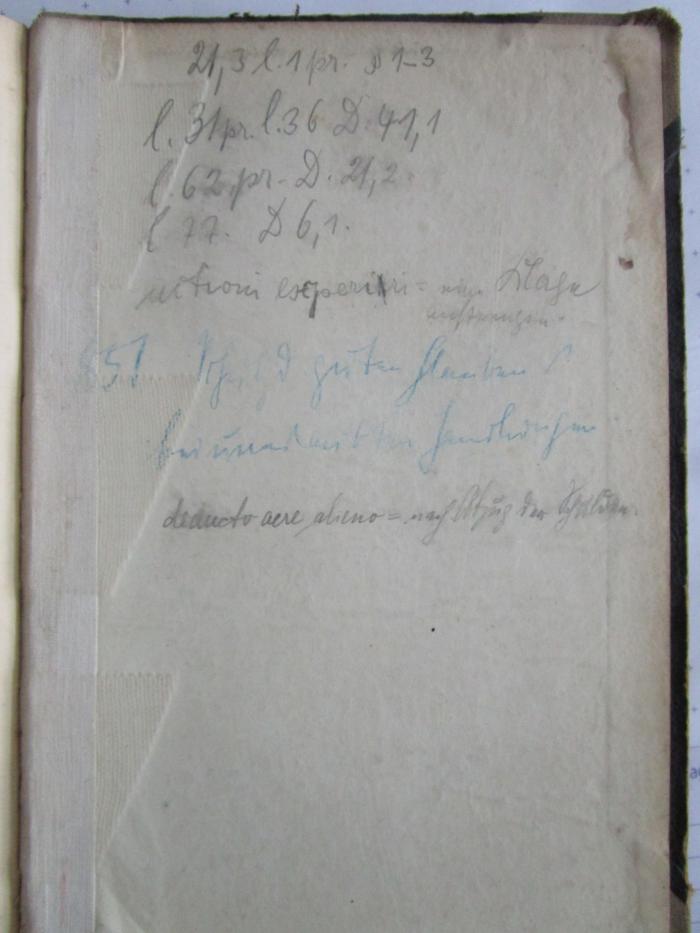 21,3 l. 1 pr. § 1–3
l. 31 pr. l. 36 D. 41,1
l. 62 pr. D. 21,2.
l 77. D 6,1.
actioni experiri = eine Klage
anstrengen.
guten Glauben
Handlungen
deducto aere alieno = nach Abzug der Schulden.